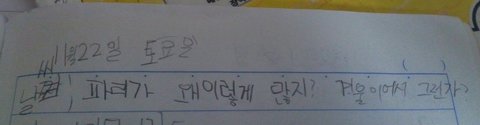 11월 22일 토요일
( )
날씨, 파리가 왜이렇게 많지? 겨울이어서 그런가?